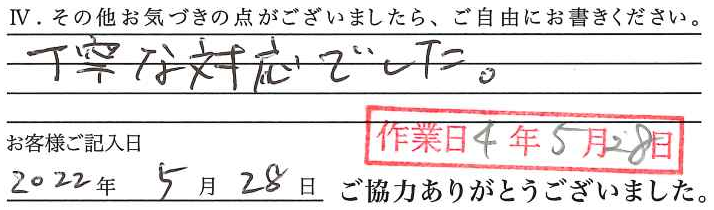 Ⅳ．その他お気づきの点がございましたら、ご自由にお書きください。
丁寧な対応でした。
作業日 4 年 5 月 28 日
お客様ご記入日
2022 年 5 月 28 日 ご協力ありがとうございました。